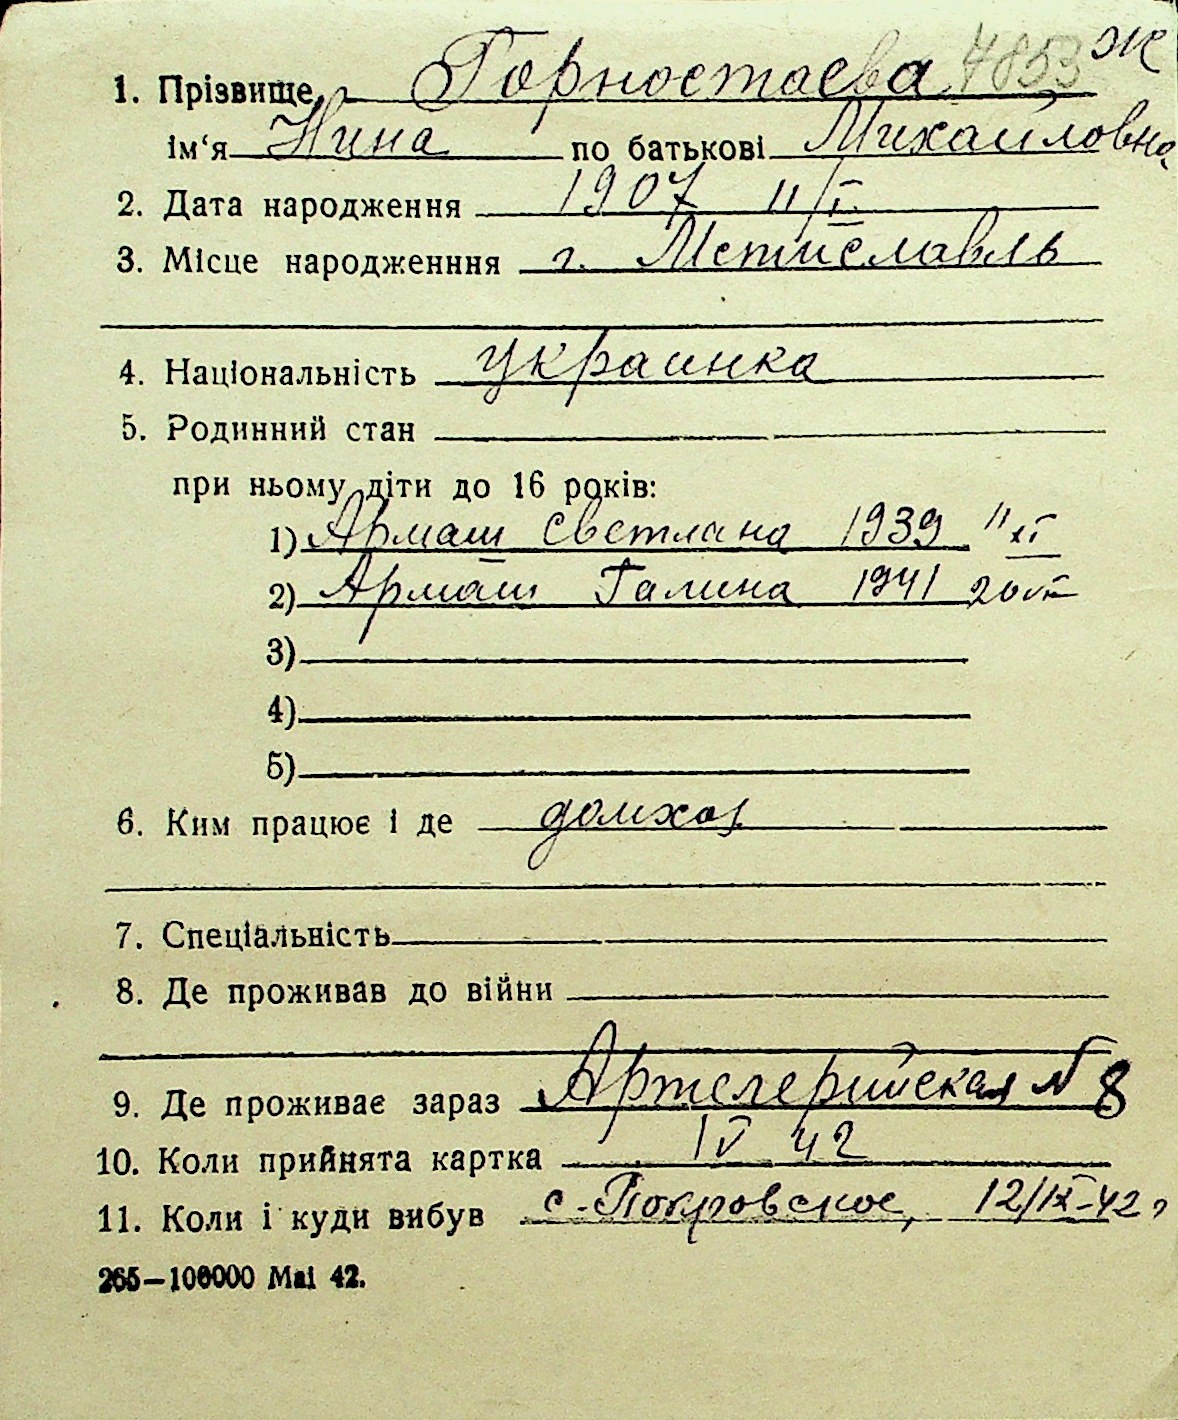 1. Прізвище Горностаева 4853 Ж
ім‘я Нина по батькові Михайловна
2. Дата народження 1907 11/I
3. Місце народженння г. Мстиславль
4. Національність украинка
5. Родинний стан
при ньому діти до 16 років:
1) Армаш Светлана 1939 11 XI
2) Армаш Галина 1941 20
3)
4)
5)
6. Ким працює і де домхоз
7. Спеціальність
8. Де проживав до війни
9. Де проживає зараз Артелерийская N 8
10. Коли прийнята картка IV 42
11. Коли і куди вибув с. Покровское, 12/IX-42 г
265—100000 Mai 42.